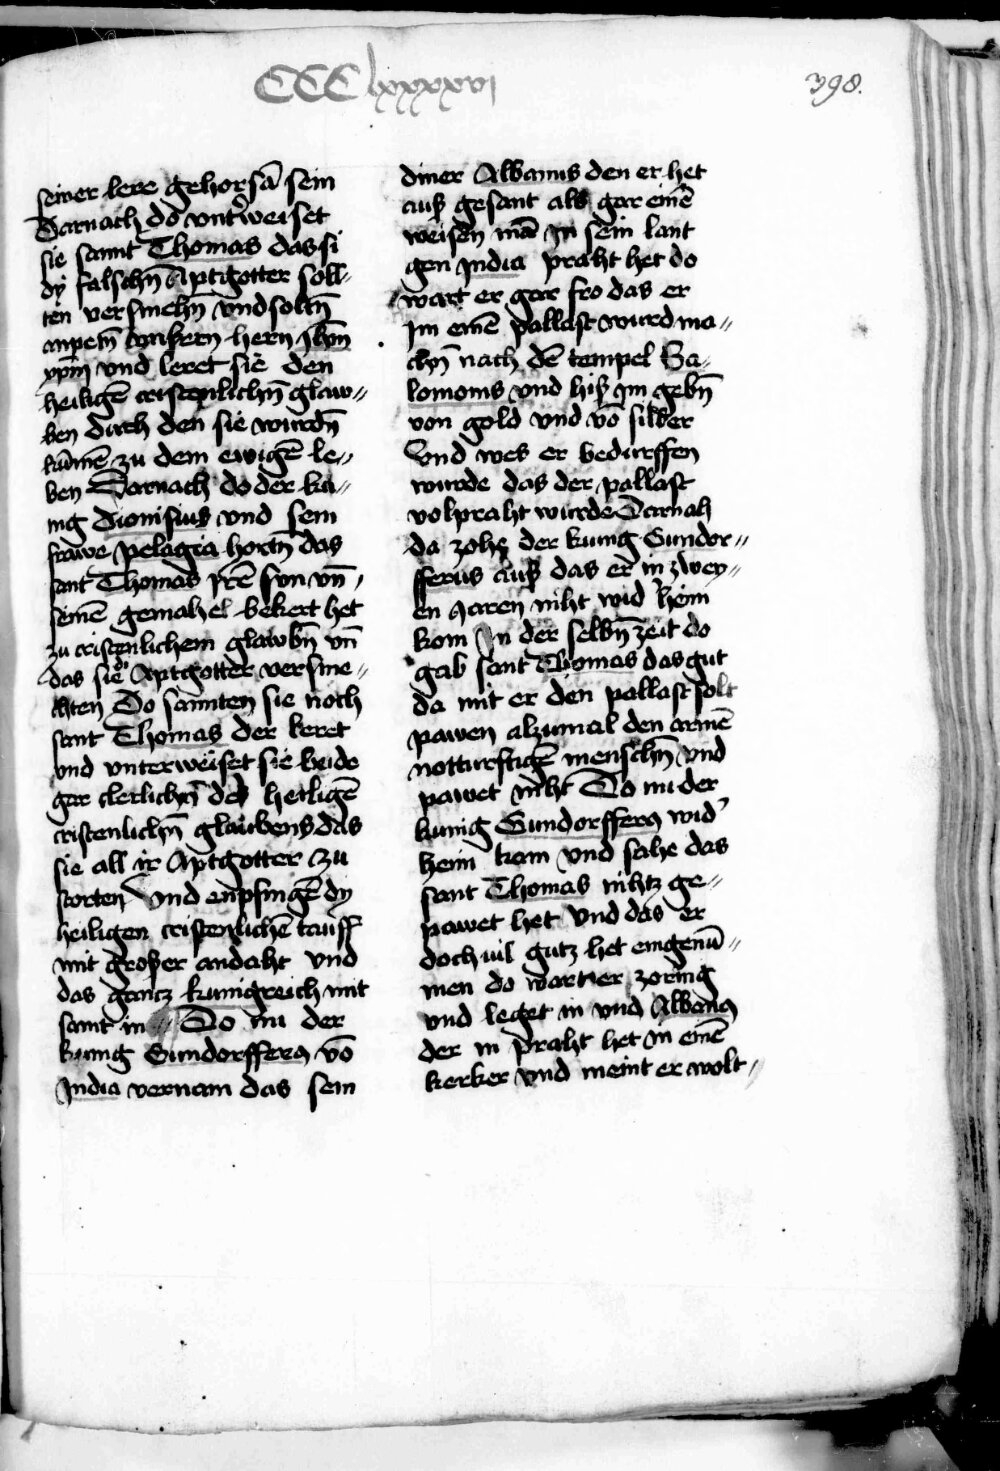 CCClxxxxvi
398.
seiner lere gehorsā sein
Darnach do vnt'weiset
sie sannt Thomas das si
dÿ falschn̄ Aptgotter soll〃
ten versmehn̄ vnd soltn̄
anpetn̄ vnßern hern Jhm̄
xpm̄ vnd leret sie den
heiligē cristenlichn̄ glaw〃
ben durch den sie wurdn̄
kūmē zu dem ewigē le〃
ben Darnach do der ku〃
nig dionisius vnd sein
frawe pelagia hortn̄ das
sant Thomas irē sun vn̄
seinē gemahel bekert het
zu cristenlichem glawbn̄ vn̄
das sie Aptgotter versme〃
chten Do sannten sie noch
sant Thomas der leret
vnd vnterweiset sie beide
gar clerlichn̄ des heiligē
cristenlichn̄ glaubens das
sie all ir Aptgotter zu
storten vnd enpfingē dÿ
heiligen cristenlichē tauff
mit großer andaht vnd
das gantz kunigreich mit
samt in Do nu der
kunig Gundorfferus vō
India vernam das sein
diner Albanus den er het
auß gesant als gar einē
weisen mā in sein lant
gen India praht het do
wart er gar fro das er
im einē pallast wurd ma〃
chn̄ nach dē tempel Sa〃
lomonis vnd hiß im gebn̄
von gold vnd vō silber
vnd wes er bedurffen
wurde das der pallast
volpraht wurde Darnah
da zohe der kunig Gundor〃
fferus auß das er in zwey〃
en iaren niht wid' heim
kom In der selbn̄ zeit do
gab sant Thomas das gut
da mit er den pallast solt
pawen alzumal den armē
notturftigē menschn̄ vnd
pawet niht Do nu der
kunig Gundorfferus wid'
heim kam vnd sahe das
sant Thomas nihtz ge〃
pawet het vnd das er
doch vil gutz het eingenū〃
men do wart er zornig
vnd leget in vnd Albanus
der in praht het in einē
kerker vnd meint er wolt